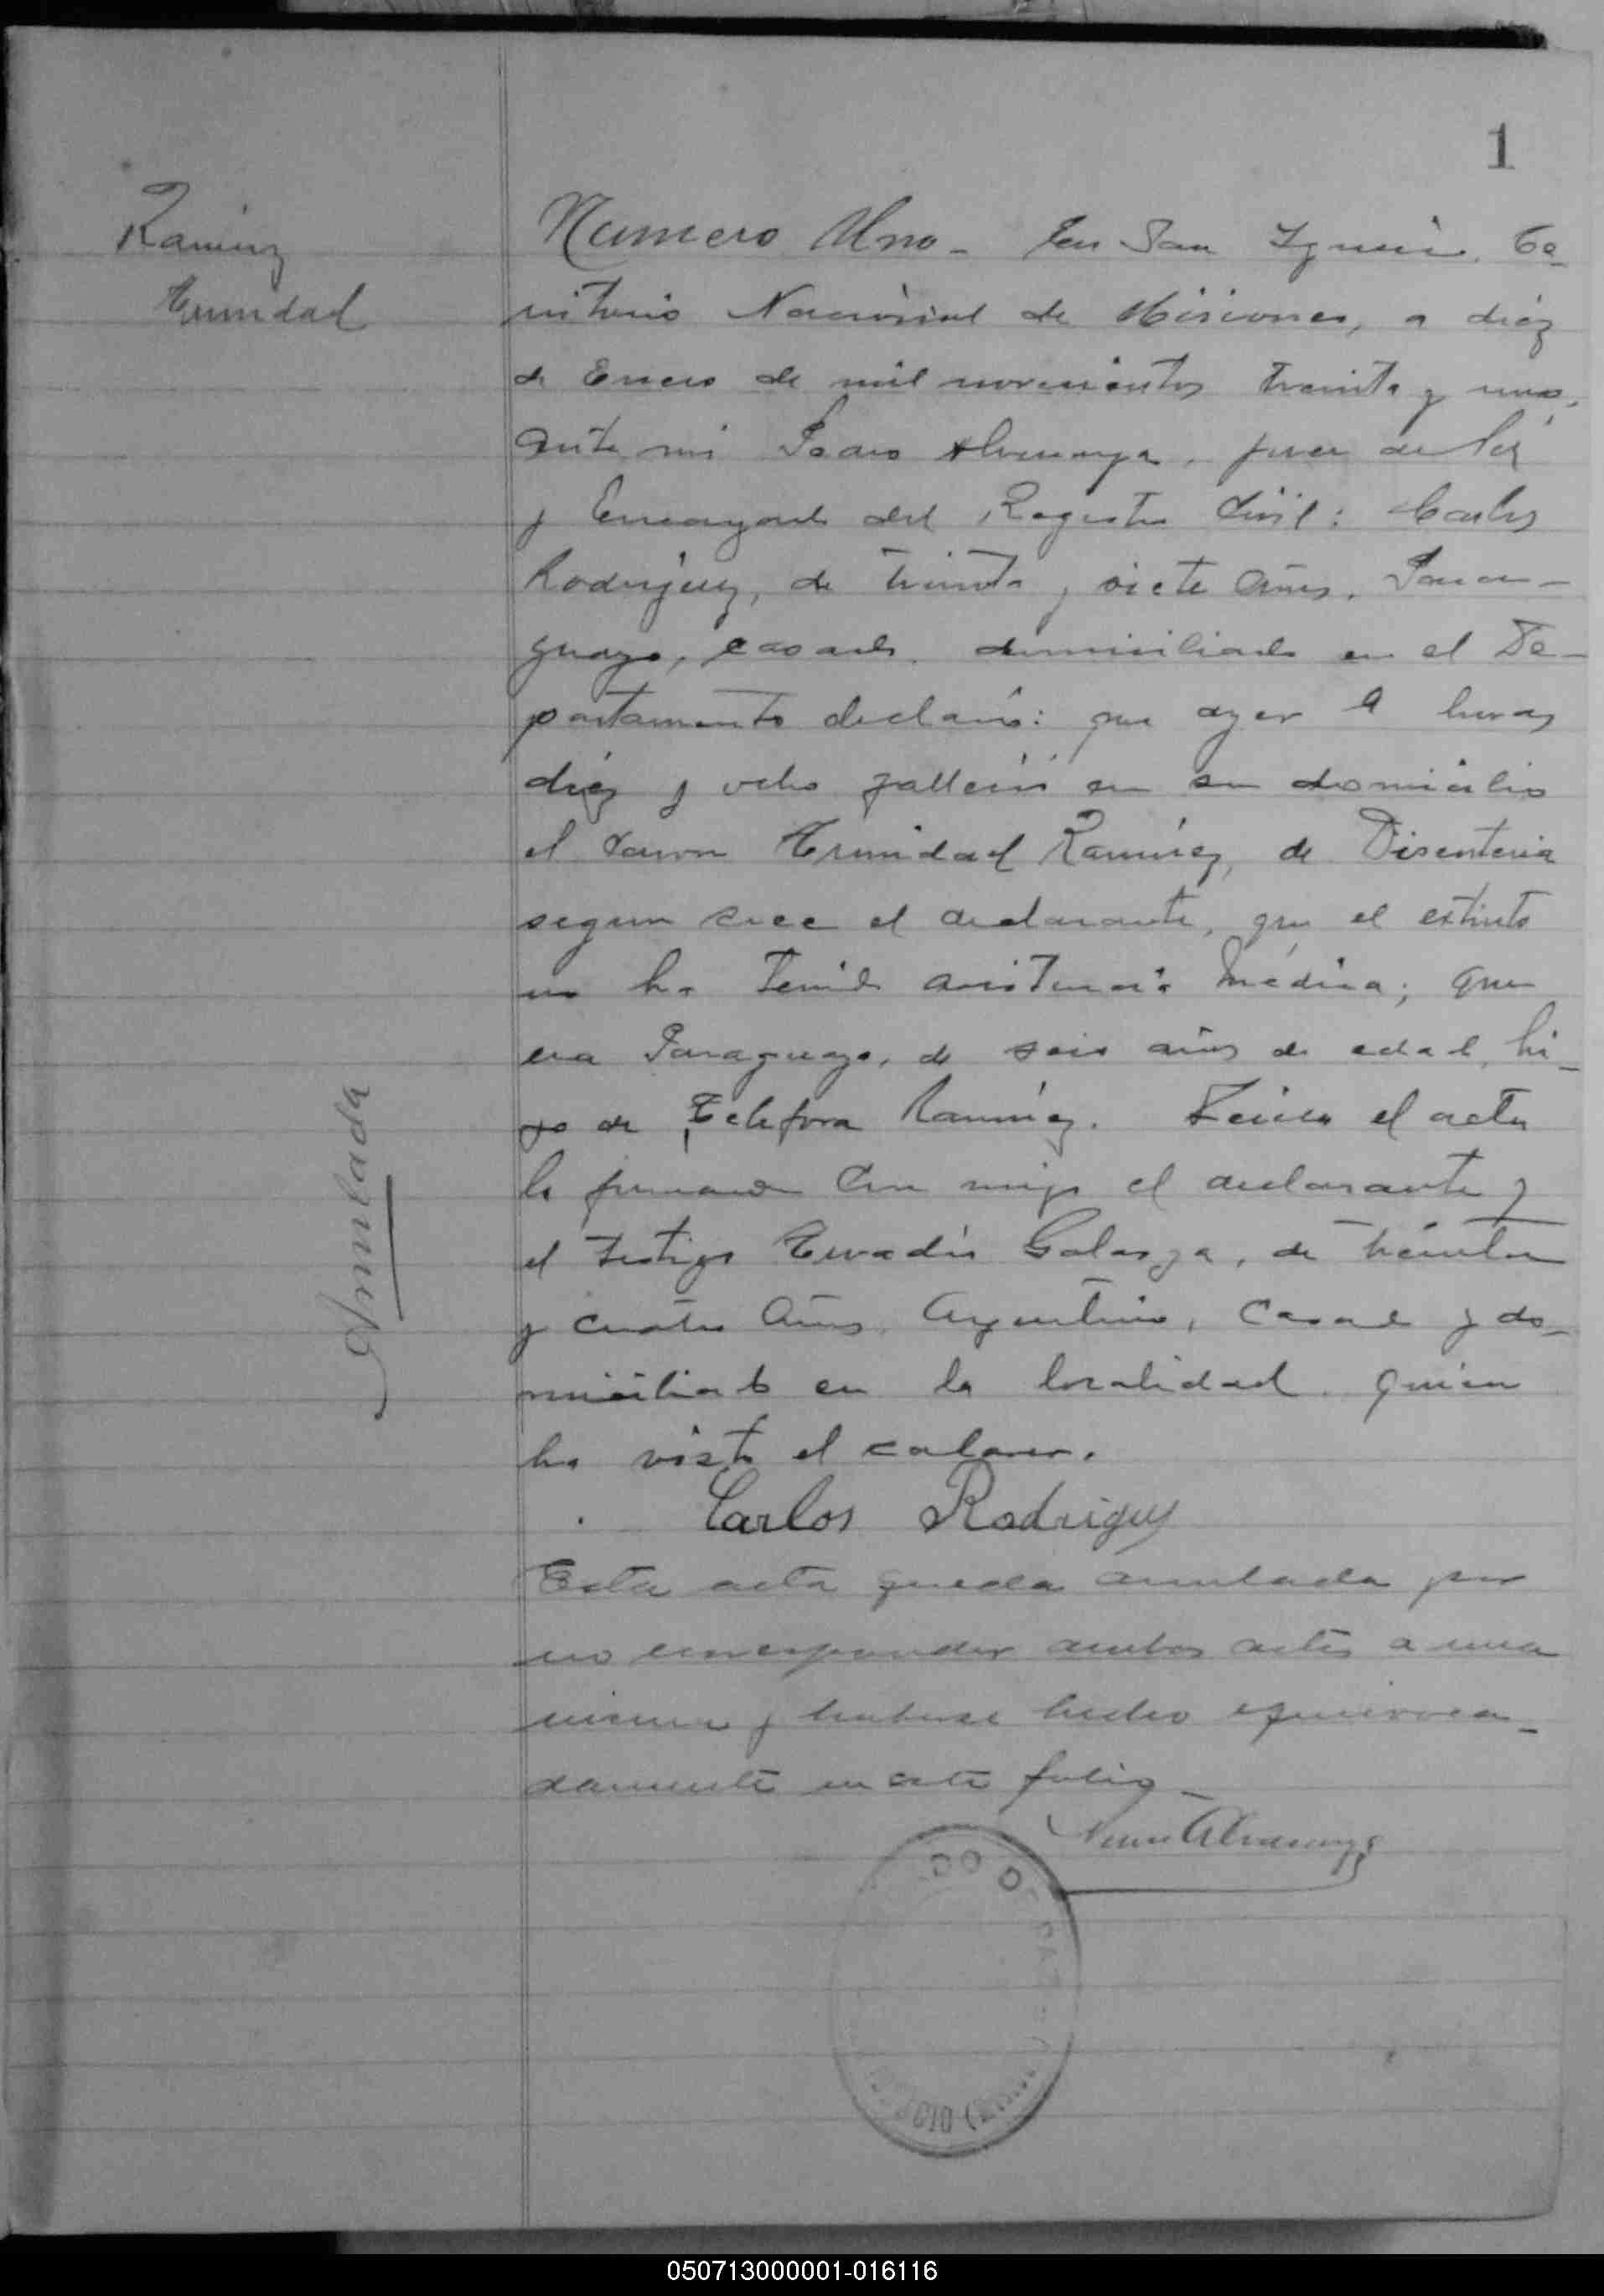 1
Ramirez
Trinidad
Numero Uno - En San Ignacio, Te-
rritorio Nacional de Misiones, a diéz
de Enero de mil novecientos treinta y uno,
ante mi Pedro Alvarenga, juez de Paz
y Encargado del Registro Civil: Carlos
Rodriguez, de treinta y siete años, Para-
guayo, casado, domiciliado en el De-
partamento declaró: que ayer a horas
diéz y ocho falleció en su domicilio
el varon Trinidad Ramírez, de Disenteria
segun cree el declarante, que el extinto
no ha tenido asistencia médica; que
era Paraguayo, de seis años de edad, hi-
jo de Ramírez. el acta
la firmaron con migo el declarante y
el testigo de treinta
y cuatro años, Argentino, casado y do-
miciliado en la localidad, quien
ha visto el cadaver.
Carlos Rodriguez
Anulada
Esta acta queda anulada por
no corresponder ambas actas a una
misma y haberse hecho equivoca-
damente en este folio -
Alvarenga
050713000001-016116